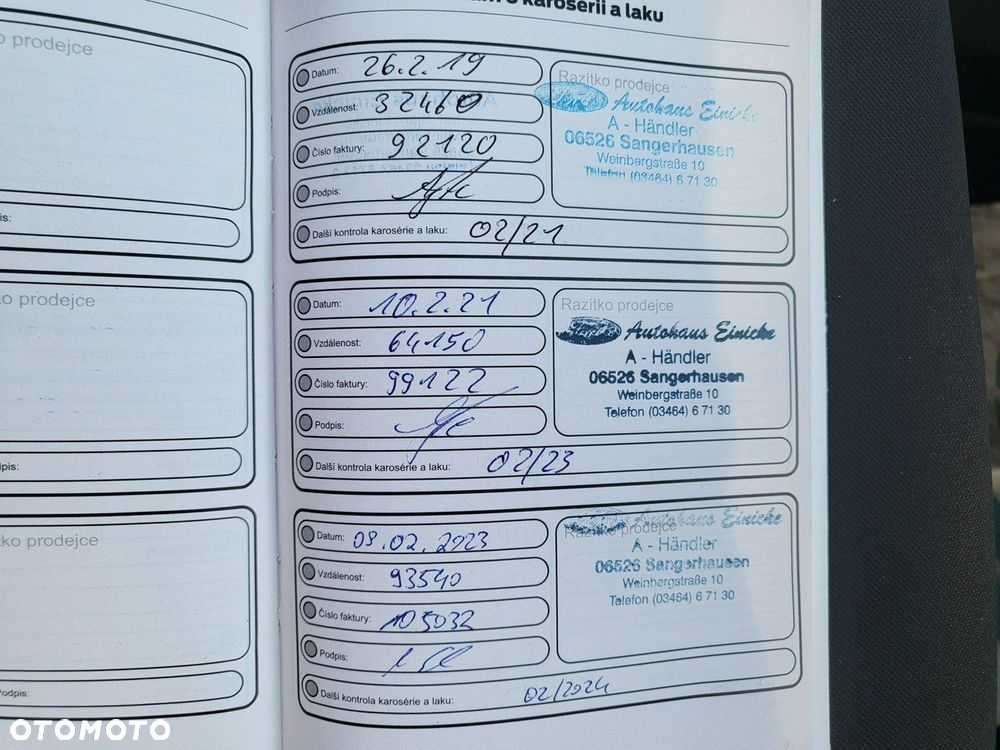 karoserii a laku
o prodejce
is:
Datum: 26.2.19
Vzdálenost: 32460
Číslo faktury: 92120
Podpis:
Další kontrola karosérie a laku: 02/21
Razítko prodejce
Ford Autohaus Einicke
A - Händler
06526 Sangerhausen
Weinbergstraße 10
Telefon (03464) 6 71 30
o prodejce
pis:
Datum: 10.2.21
Vzdálenost: 64150
Číslo faktury: 99122
Podpis:
Další kontrola karosérie a laku: 02/23
Razítko prodejce
Ford Autohaus Einicke
A - Händler
06526 Sangerhausen
Weinbergstraße 10
Telefon (03464) 6 71 30
ko prodejce
odpis:
Datum: 09.02.2023
Vzdálenost: 93540
Číslo faktury: 105032
Podpis:
Další kontrola karosérie a laku: 02/2024
Razítko prodejce
Autohaus Einicke
A - Händler
06526 Sangerhausen
Weinbergstraße 10
Telefon (03464) 6 71 30
OTOMOTO